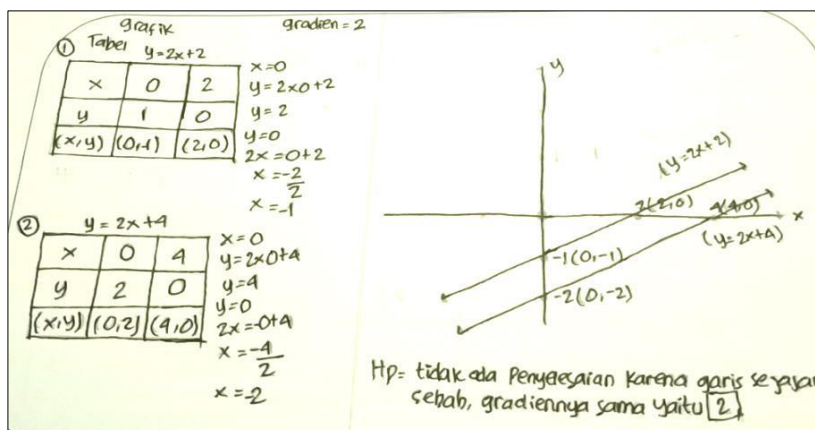 grafik
gradien = 2
① Tabel y=2x+2
x 0 2
y 1 0
(x,y) (0,-1) (2,0)
x=0
y=2x0+2
y=2
y=0
2x=0+2
x=-2/2
x=-1
② y=2x+4
x 0 4
y 2 0
(x,y) (0,2) (4,0)
x=0
y=2x0+4
y=4
y=0
2x=-0+4
x=-4/2
x=-2
y
(y=2x+2)
2(2,0)
4(4,0)
x
(y=2x+4)
-1(0,-1)
-2(0,-2)
Hp= tidak ada Penyelesaian karena garis sejajar
sebab, gradiennya sama yaitu 2